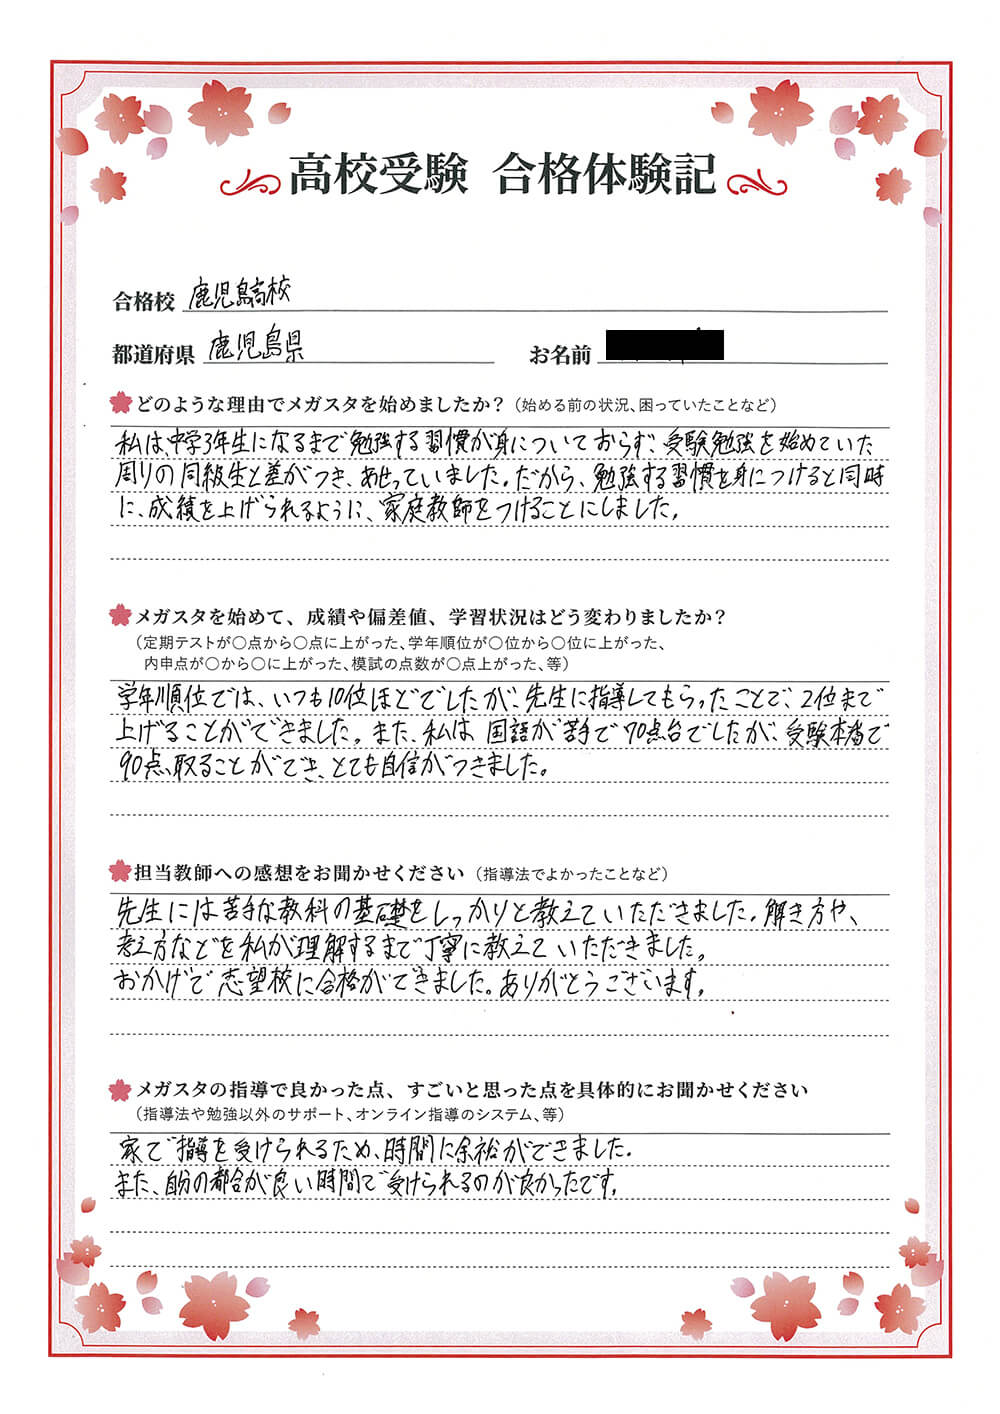 高校受験 合格体験記
合格校 鹿児島高校
都道府県 鹿児島県 お名前
どのような理由でメガスタを始めましたか？（始める前の状況、困っていたことなど）
私は、中学3年生になるまで勉強する習慣が身についておらず、受験勉強を始めていた
周りの同級生と差がつき、あせっていました。だから、勉強する習慣を身につけると同時
に、成績を上げられるように、家庭教師をつけることにしました。
メガスタを始めて、成績や偏差値、学習状況はどう変わりましたか？
（定期テストが〇点から〇点に上がった、学年順位が〇位から〇位に上がった、
内申点が〇から〇に上がった、模試の点数が〇点上がった、等）
学年順位では、いつも10位ほどでしたが、先生に指導してもらったことで、2位まで
上げることができました。また、私は国語が苦手で70点台でしたが、受験本番で
90点、取ることができ、とても自信がつきました。
担当教師への感想をお聞かせください（指導法でよかったことなど）
先生には苦手な教科の基礎をしっかりと教えていただきました。解き方や、
考え方などを私が理解するまで丁寧に教えていただきました。
おかげで志望校に合格ができました。ありがとうございます。
メガスタの指導で良かった点、すごいと思った点を具体的にお聞かせください
（指導法や勉強以外のサポート、オンライン指導のシステム、等）
家で指導を受けられるため、時間に余裕ができました。
また、自分の都合が良い時間で受けられるのが良かったです。